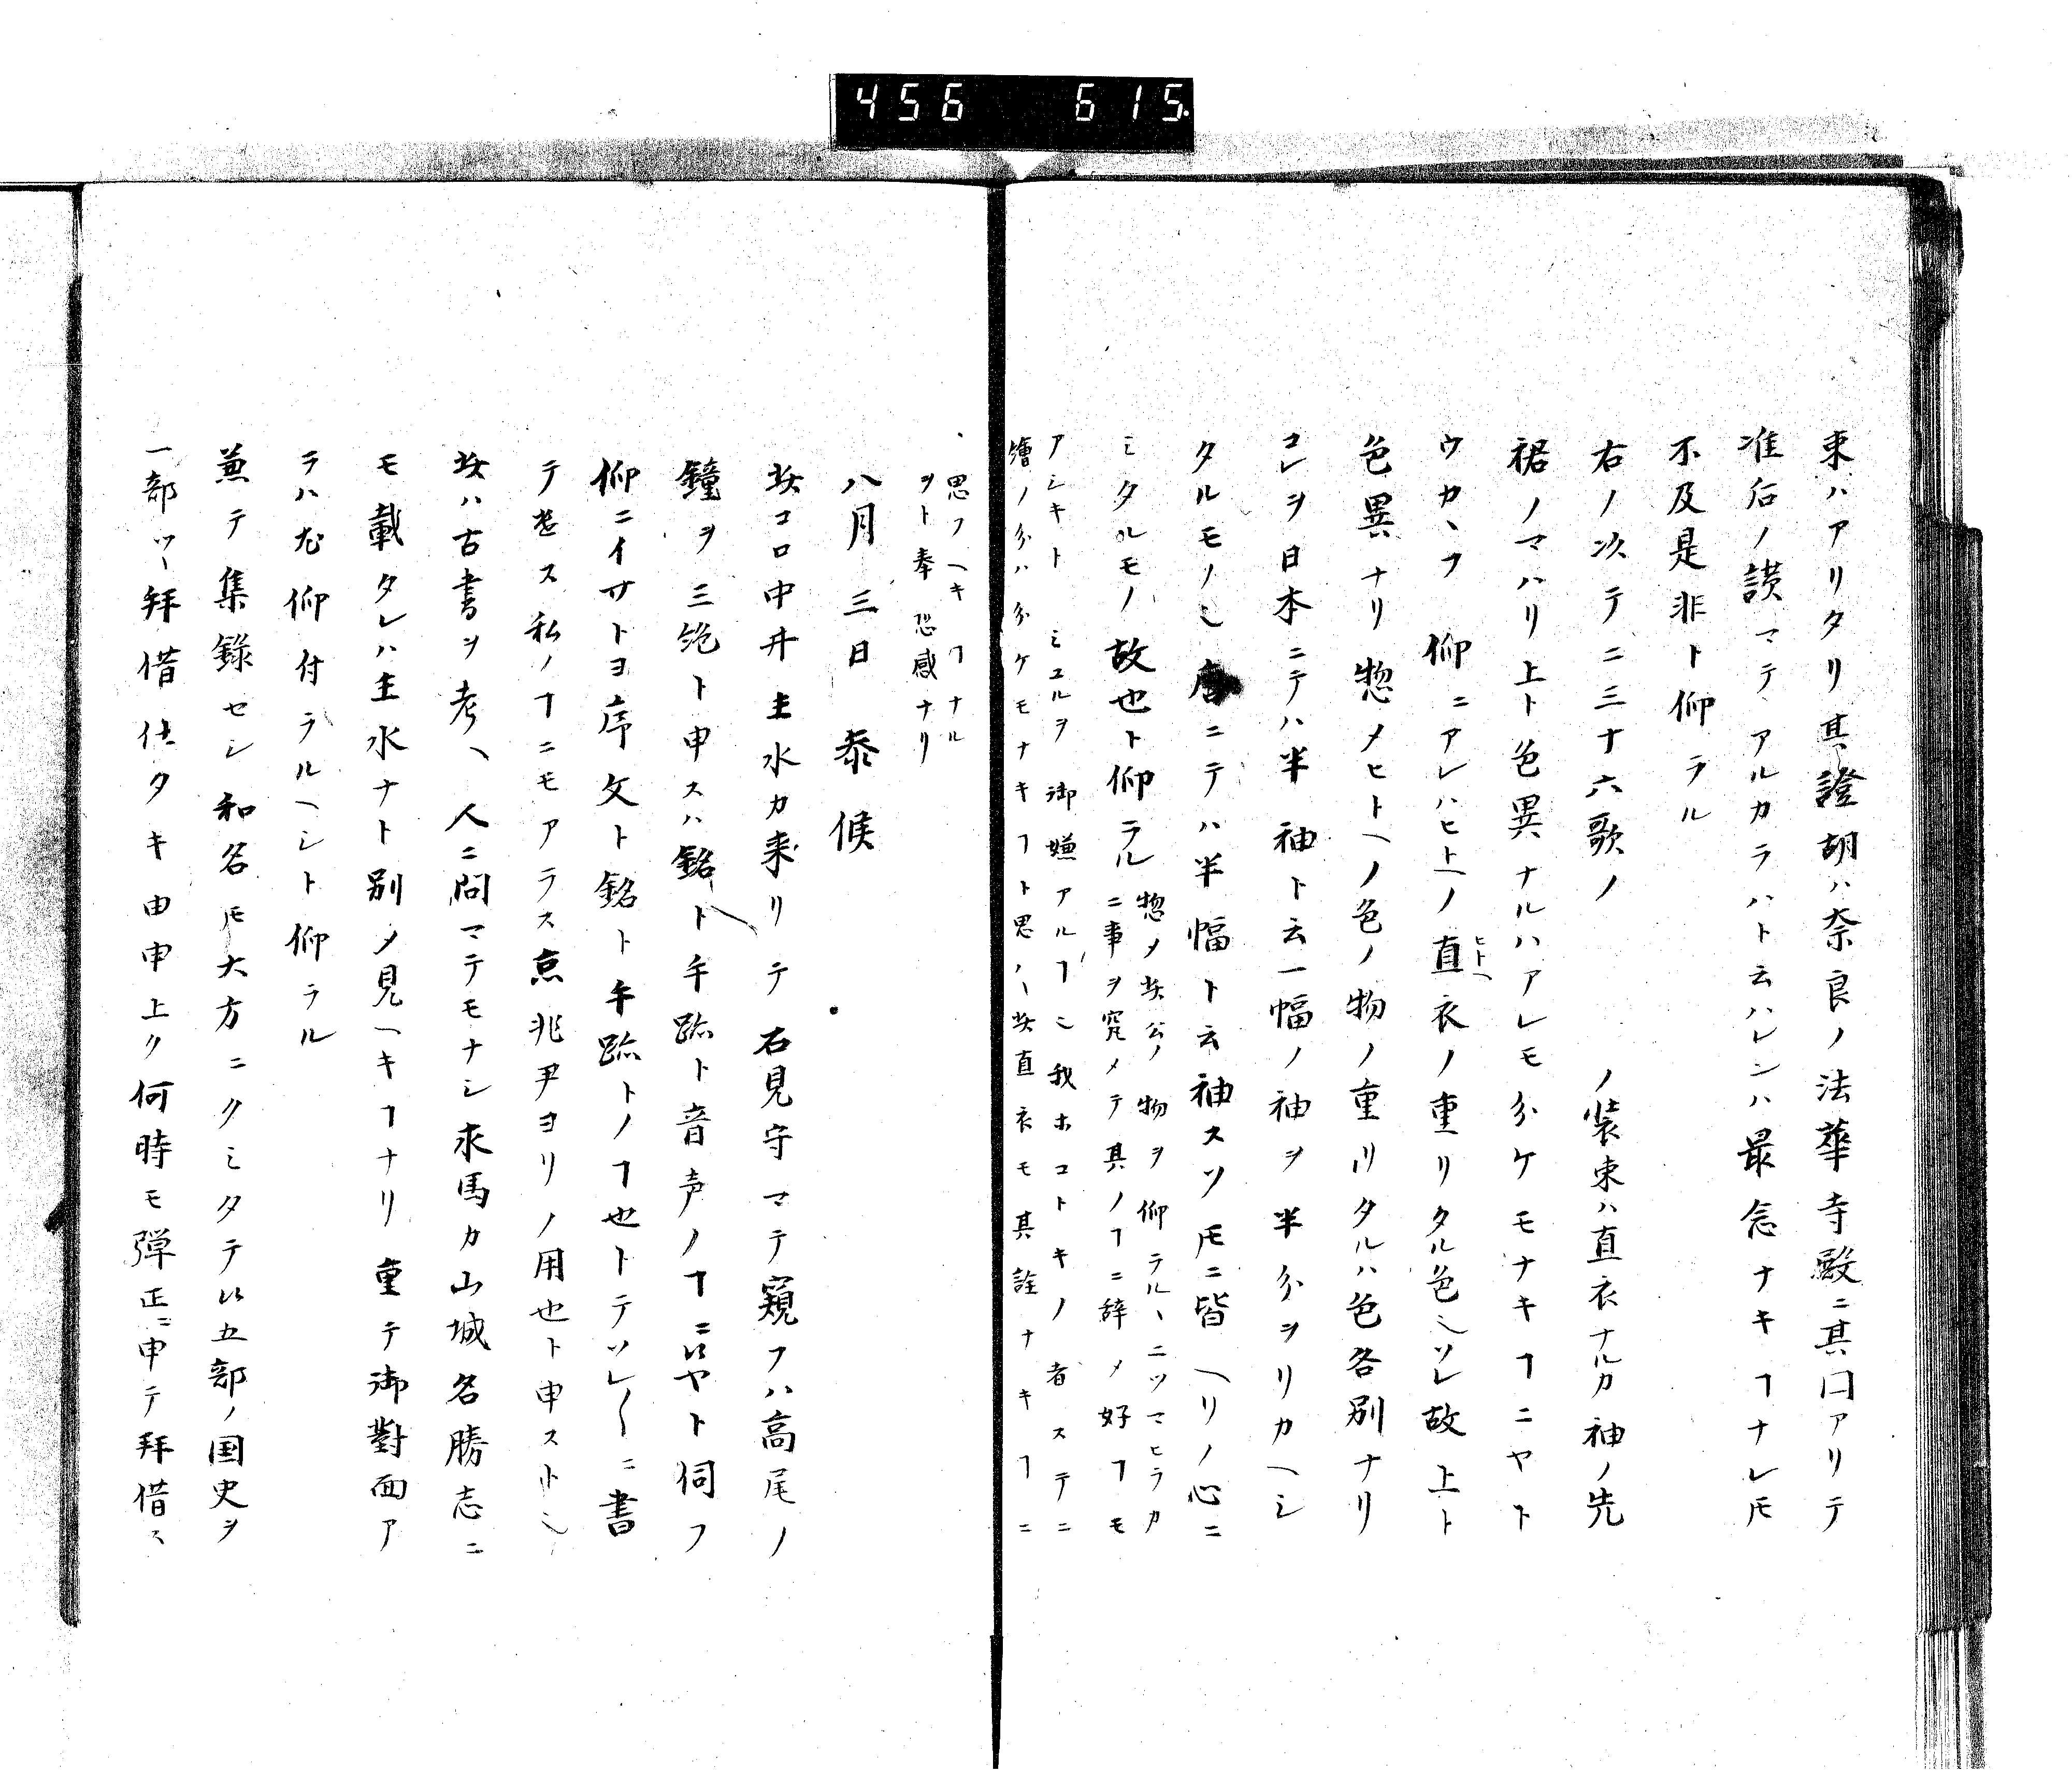 456 615
束ハアリタリ其證胡ハ奈良ノ法華寺殿ニ其口アリテ
准后ノ讃マテアルカラハト云ハレンハ最念ナキヿナレ𪜈
不及是非ト仰ラル
右ノ次テニ三十六歌ノ　　ノ装束ハ直衣ナルカ袖ノ先
裾ノマハリ上ト色異ナルハアレモ分ケモナキヿニヤト
ウカヽフ　仰ニアレハヒトヘノ直衣ノ重リタル色也ソレ故上ト
ヒトヘ
色異ナリ惣メヒトヘノ色ノ物ノ重リタルハ色各別ナリ
コレヲ日本ニテハ半袖ト云一幅ノ袖ヲ半分ヲリカヘシ
タルモノ也唐ニテハ半幅ト云袖スソ𪜈ニ皆ヘリノ心ニ
ミタルモノ故也ト仰ラル
惣メ此公ノ物ヲ仰ラルヽニツマヒラカ
ニ事ヲ究メテ其ノヿニ辞メ好ヿモ
アシキト　ミユルヲ御嫌アルヿ也我ホコトキノ者ステニ
繪ノ分ハ分ケモナキヿト思ヘハ此直衣モ其詮ナキヿニ
思フヘキヿナル
ヲト奉恐感ナリ
八月三日　泰候
此コロ中井主水カ来リテ石見守マテ窺フハ高尾ノ
鐘ヲ三絶ト申スハ銘ト手跡ト音声ノヿニ候ヤト伺フ
仰ニイサトヨ序文ト銘ト手跡トノヿ也トテソレ〱ニ書
テ遣ス私ノヿニモアラス京兆尹ヨリノ用也ト申スト也
此ハ古書ヲ考ヘ、人ニ問マテモナシ求馬カ山城名勝志ニ
モ載タレハ主水ナト別メ見ヘキヿナリ重テ御對面ア
ラハ尤仰付ラルヘシト仰ラル
兼テ集錄セシ和名𪜈大方ニクミタテ候五部ノ国史ヲ
一部ツヽ拜借仕タキ由申上ク何時モ弾正ニ申テ拜借ス